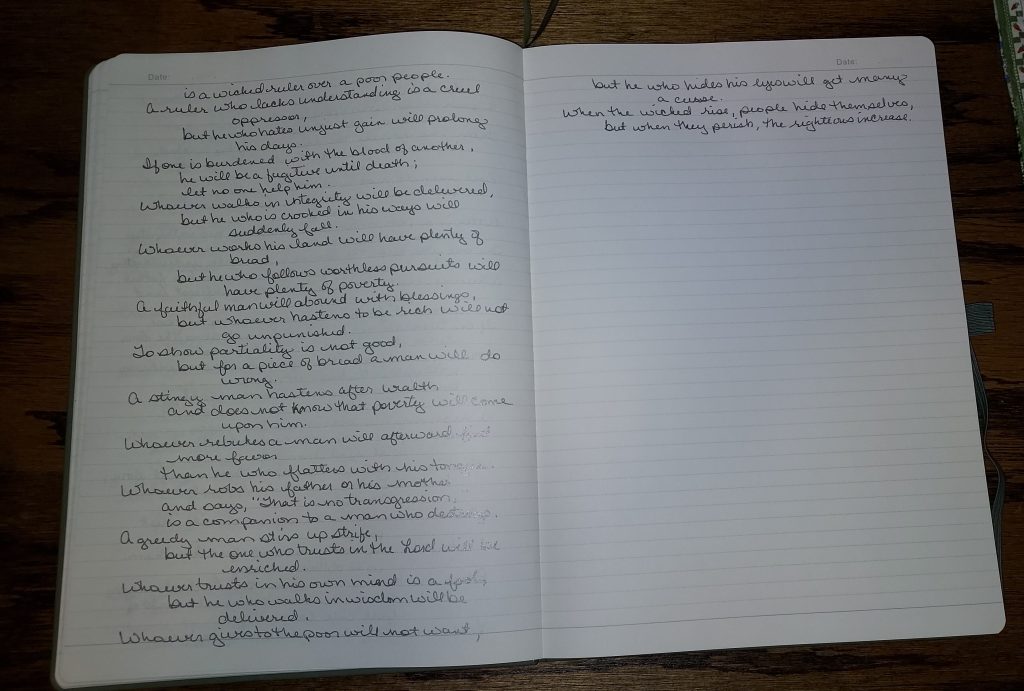 Date:
is a wicked ruler over a poor people.
A ruler who lacks understanding is a cruel
oppressor,
but he who hates unjust gain will prolong
his days.
If one is burdened with the blood of another,
he will be a fugitive until death;
let no one help him.
Whoever walks in integrity will be delivered,
but he who is crooked in his ways will
suddenly fall.
Whoever works his land will have plenty of
bread,
but he who follows worthless pursuits will
have plenty of poverty.
A faithful man will abound with blessings,
but whoever hastens to be rich will not
go unpunished.
To show partiality is not good,
but for a piece of bread a man will do
wrong.
A stingy man hastens after wealth
and does not know that poverty will come
upon him.
Whoever rebukes a man will afterward find
more favor
than he who flatters with his tongue.
Whoever robs his father or his mother
and says, "That is no transgression,"
is a companion to a man who destroys.
A greedy man stirs up strife,
but the one who trusts in the Lord will be
enriched.
Whoever trusts in his own mind is a fool,
but he who walks in wisdom will be
delivered.
Whoever gives to the poor will not want,
Date:
but he who hides his eyes will get many
a curse.
When the wicked rise, people hide themselves,
but when they perish, the righteous increase.